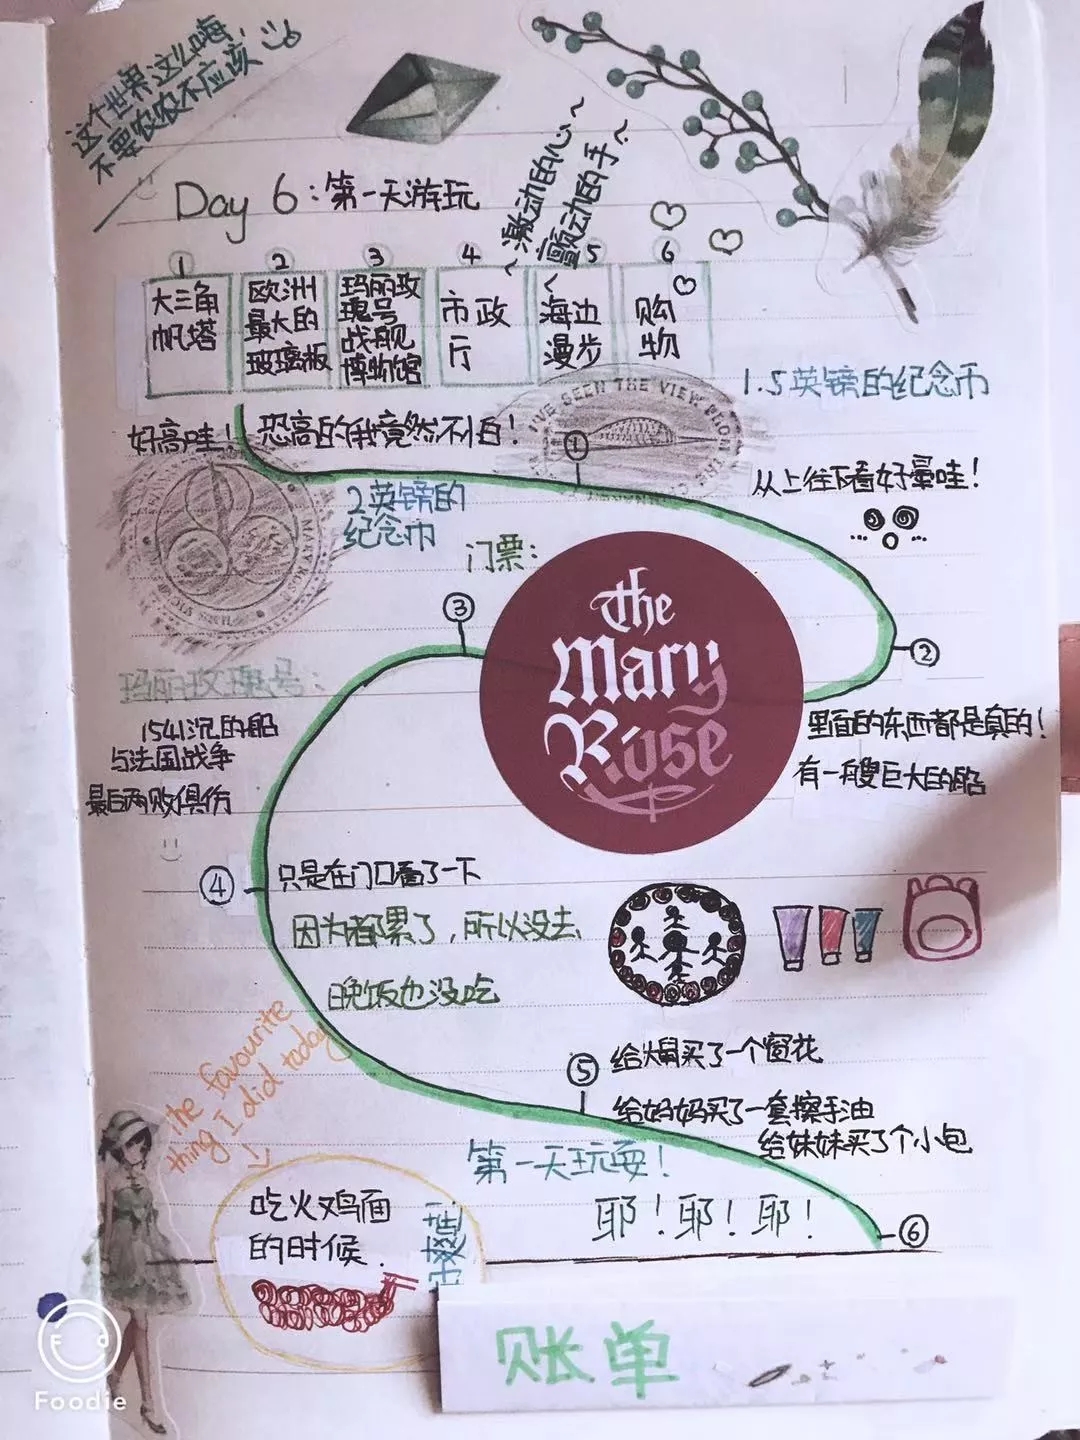 这个世界这么嗨,
不要农农不应该
Day 6:第一天游玩
~激动的心~
~颤动的手~
1 2 3 4 5 6
大三角
帆塔
欧洲
最大的
玻璃板
玛丽玫
瑰号
战舰
博物馆
市政
厅
海边
漫步
购
物
1.5英镑的纪念币
好高哇!
恐高的我竟然不怕!
I'VE SEEN THE VIEW FROM THE
①
从上往下看好晕哇!
2英镑的
纪念币
MARY ROSE
门票:
The
Mary
Rose
③
②
玛丽玫瑰号:
1541沉的船
与法国战争
最后两败俱伤
里面的东西都是真的!
有一艘巨大的船
④
只是在门口看了一下
因为都累了,所以没去
晚饭也没吃
the favourite
thing I did today
⑤
给舅买了一个窗花
给妈妈买了一套擦手油
给妹妹买了个小包
第一天玩耍!
耶!耶!耶!
⑥
吃火鸡面
的时候.
账单
Foodie